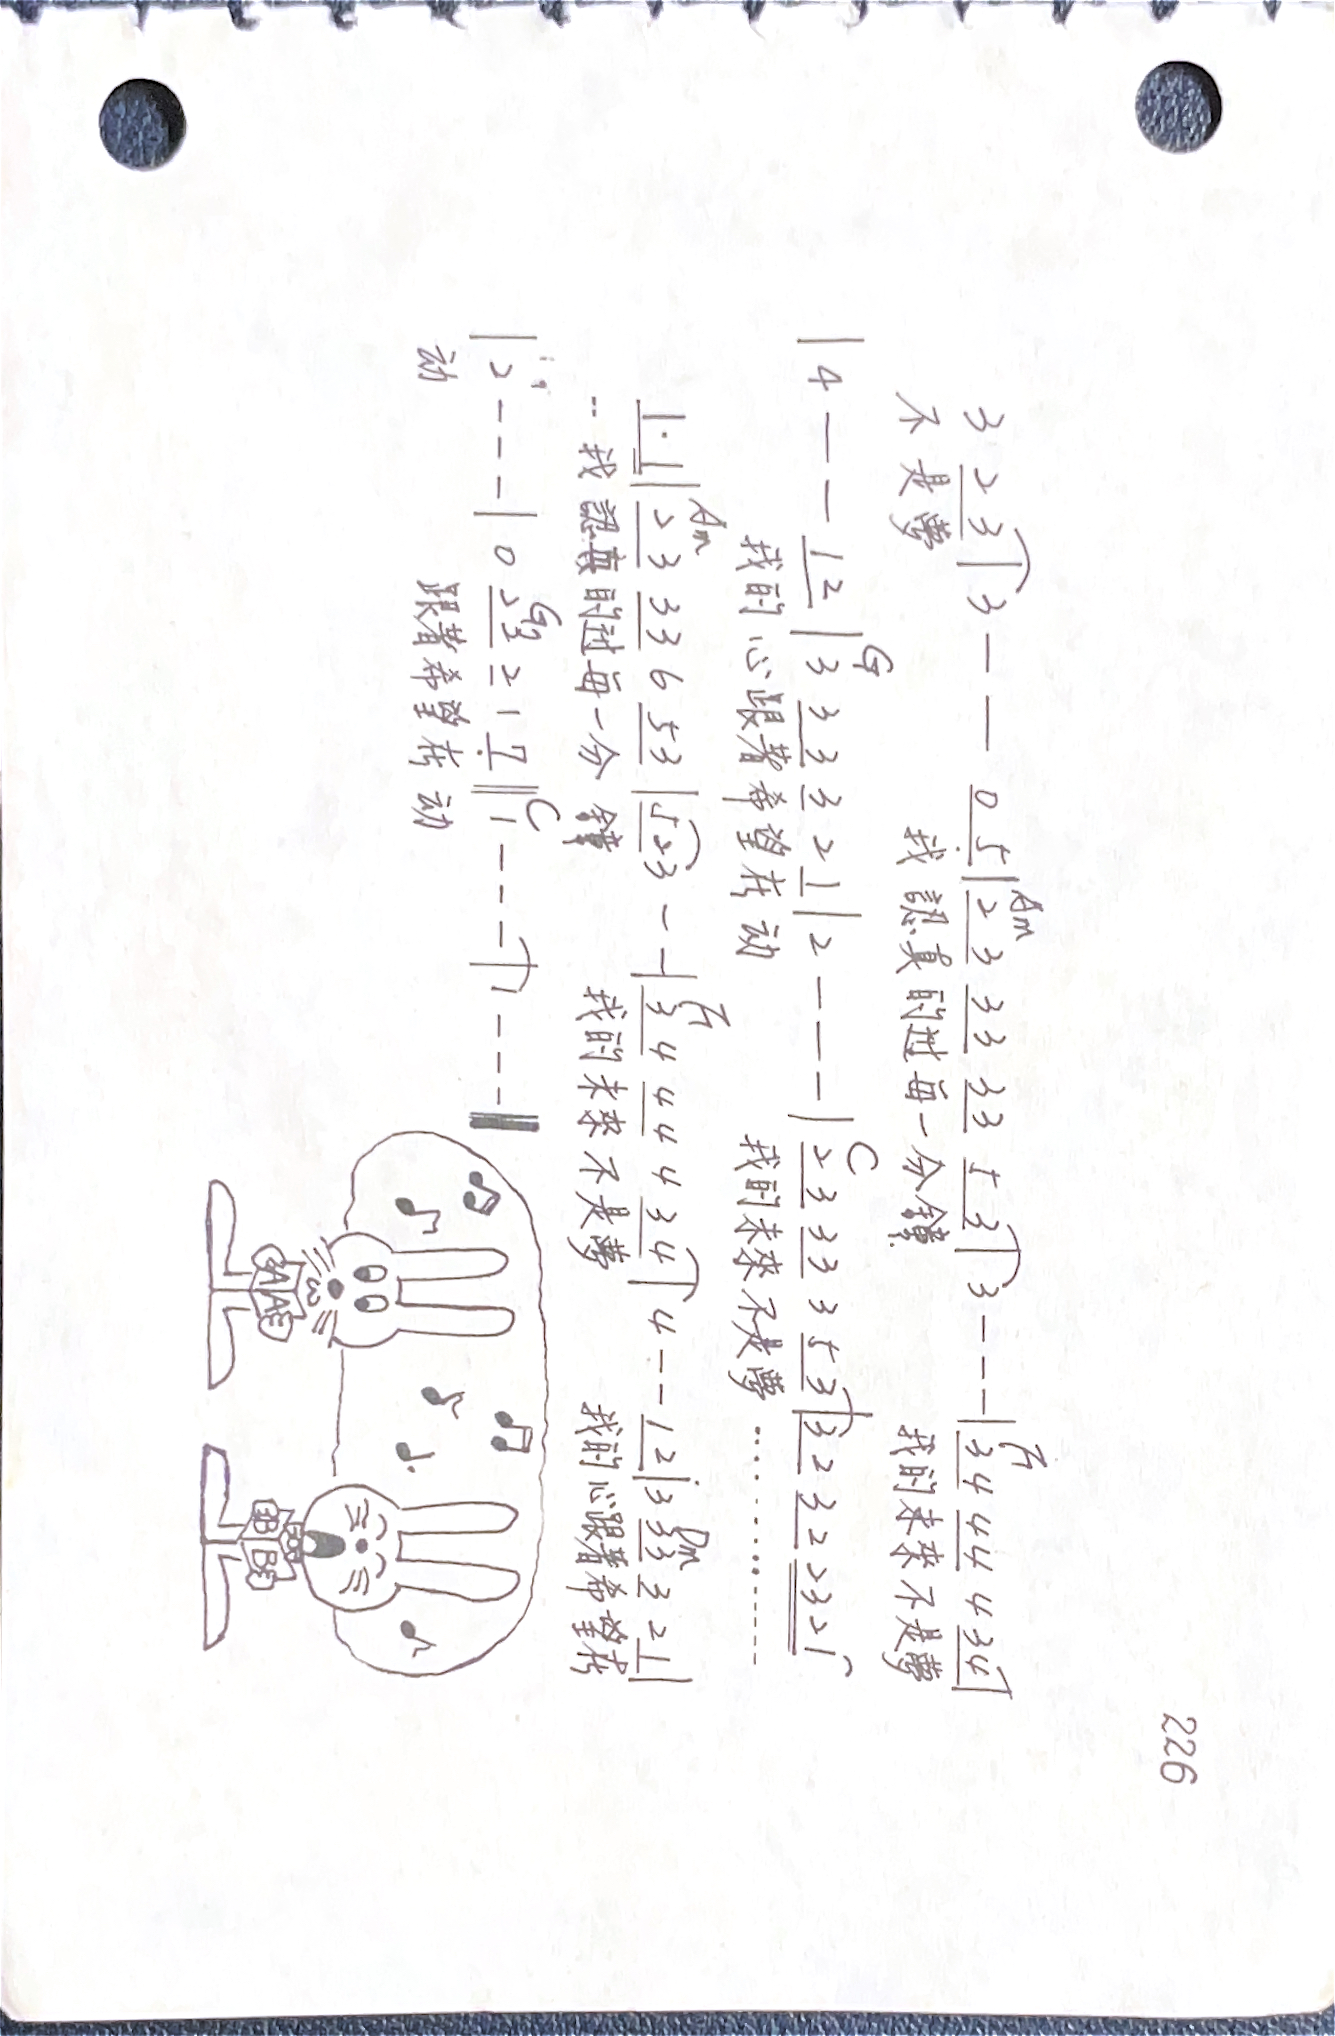 226
Am F
3 2 3 | 3 — — 0 5 | 2 3 3 3 3 3 5 3 | 3 - - - | 3 4 4 4 4 3 4 |
不是夢 我認真的过每一分鐘 我的未來不是夢
G C
| 4 — — 1 2 | 3 3 3 3 2 1 | 2 - - - | 2 3 3 3 3 5 3 | 3 2 3 2 2 3 2 1
我的心跟著希望在动 我的未來不是夢 ·············------
Am F Dm
1 · 1 | 2 3 3 3 6 5 3 | 5 2 3 - - | 3 4 4 4 4 3 4 | 4 - - 1 2 | 3 3 3 3 2 1 |
·· 我認真的过每一分鐘 我的未來不是夢 我的心跟著希望在
G C
| 2 - - - | 0 2 3 2 1 7 || 1 - - - | 1 - - - ||
动 跟著希望在动
A A B B